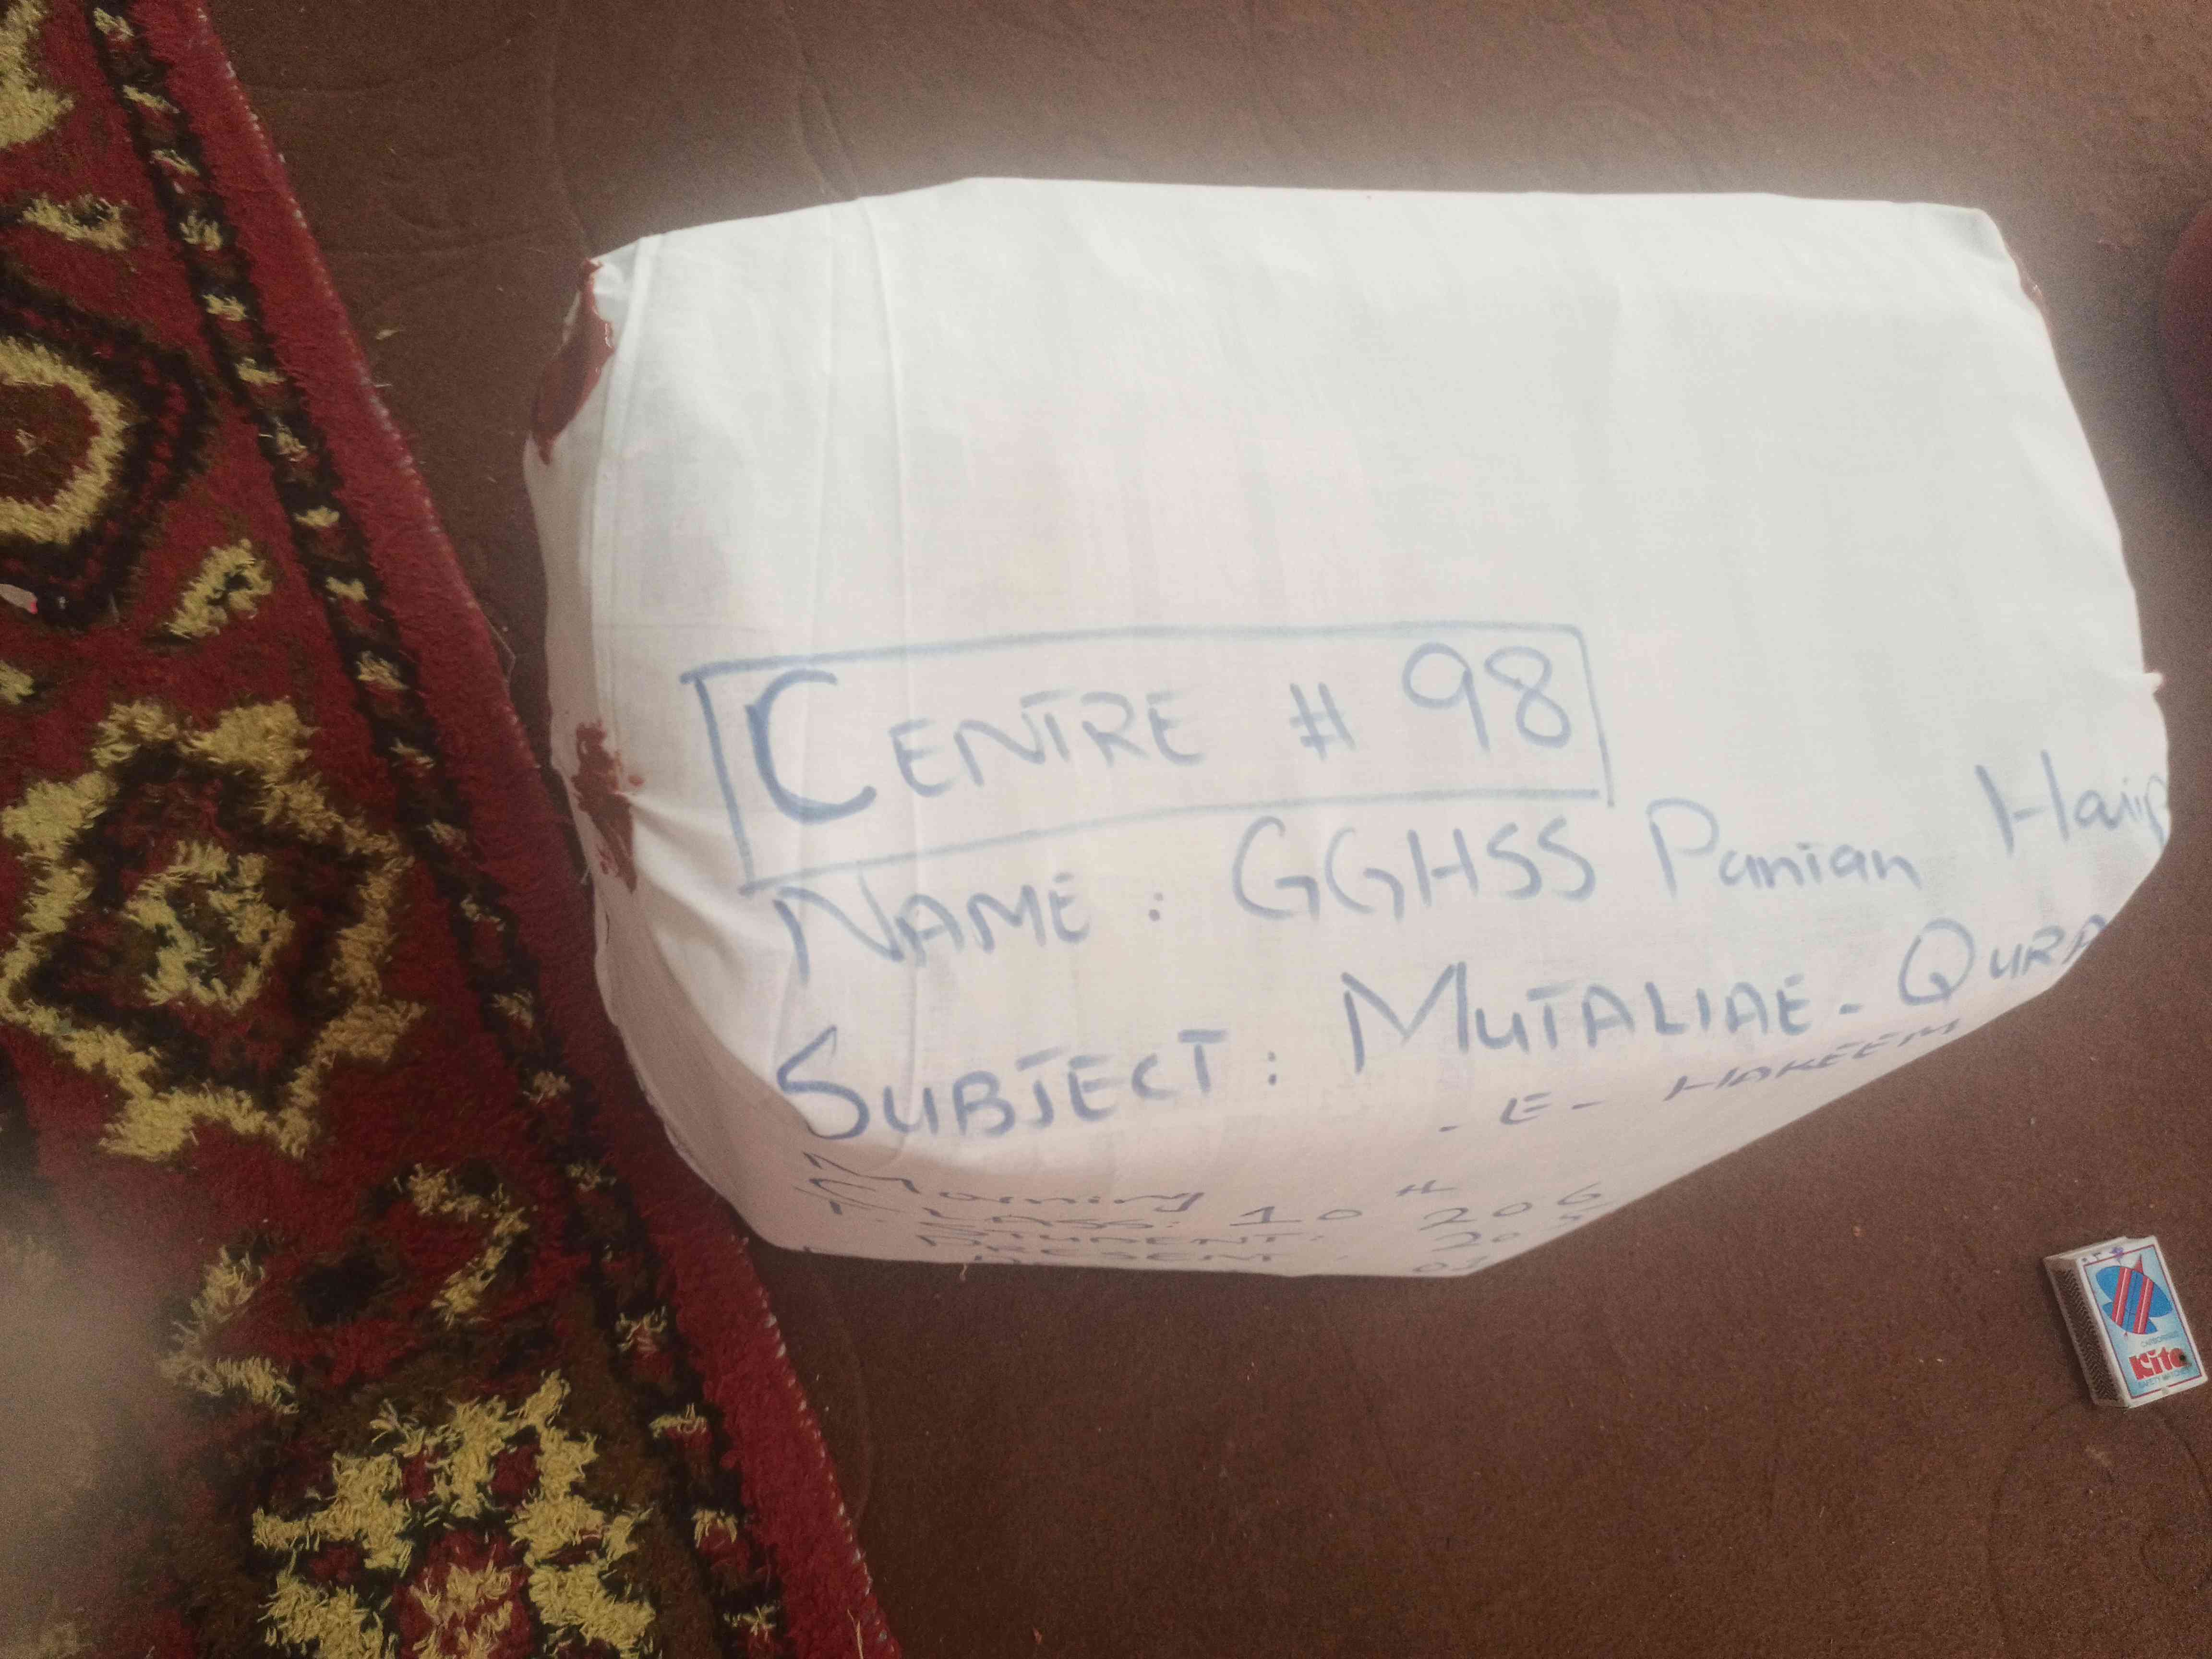 CENTRE # 98
NAME : GGHSS Panian Harip
SUBJECT : MUTALIAE - QURA
- E - HAKEEM
Morning
CLASS: 10th
STUDENT: 206
PRESENT:
Kite